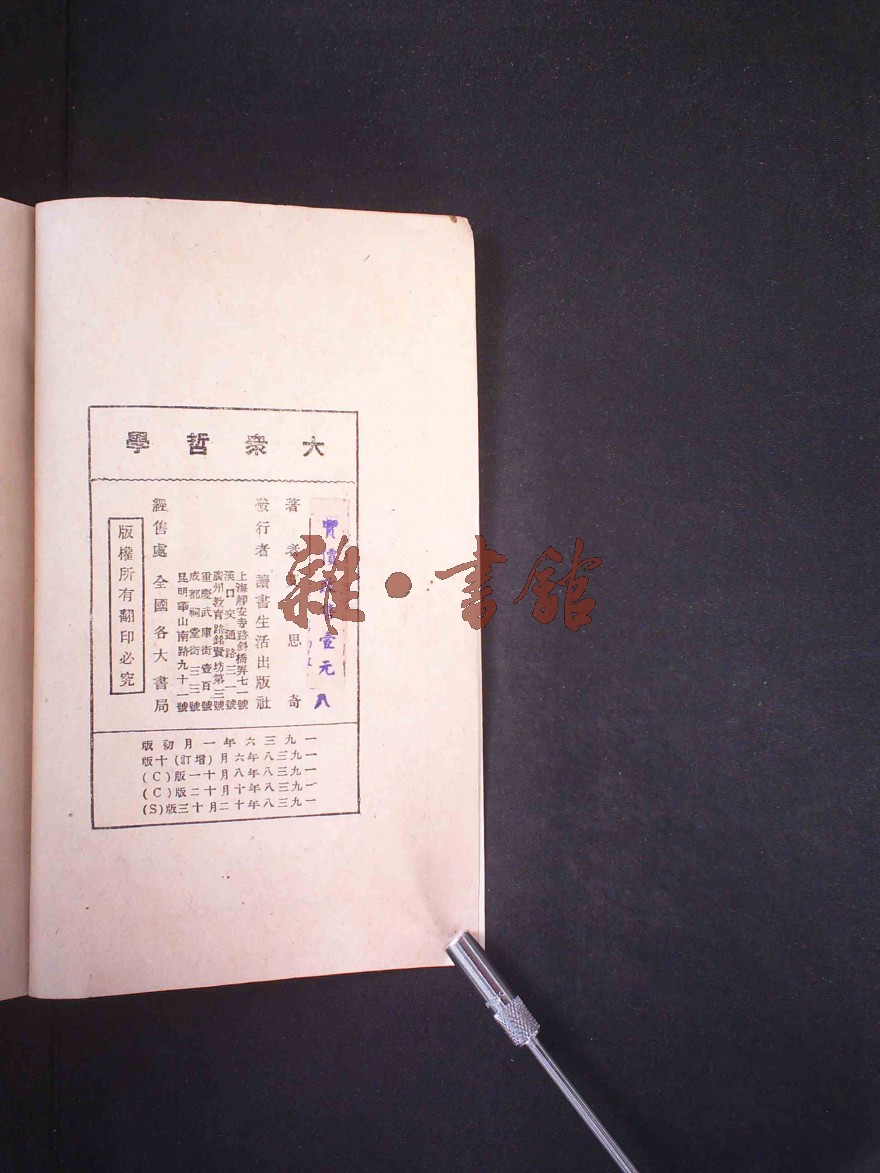 大衆哲學
實價 壹元八
著者 思奇
發行者 讀書生活出版社
上海靜安寺路斜橋弄七一號
漢口交通路三一號
廣州教育路銘賢坊第三號
重慶武庫街壹百號
成都祠堂街一二三號
昆明華山南路九十一號
經售處 全國各大書局
版權所有翻印必究
一九三六年一月初版
一九三八年六月(增訂)十版
一九三八年八月十一版(C)
一九三八年十月十二版(C)
一九三八年十二月十三版(S)
雜·書館